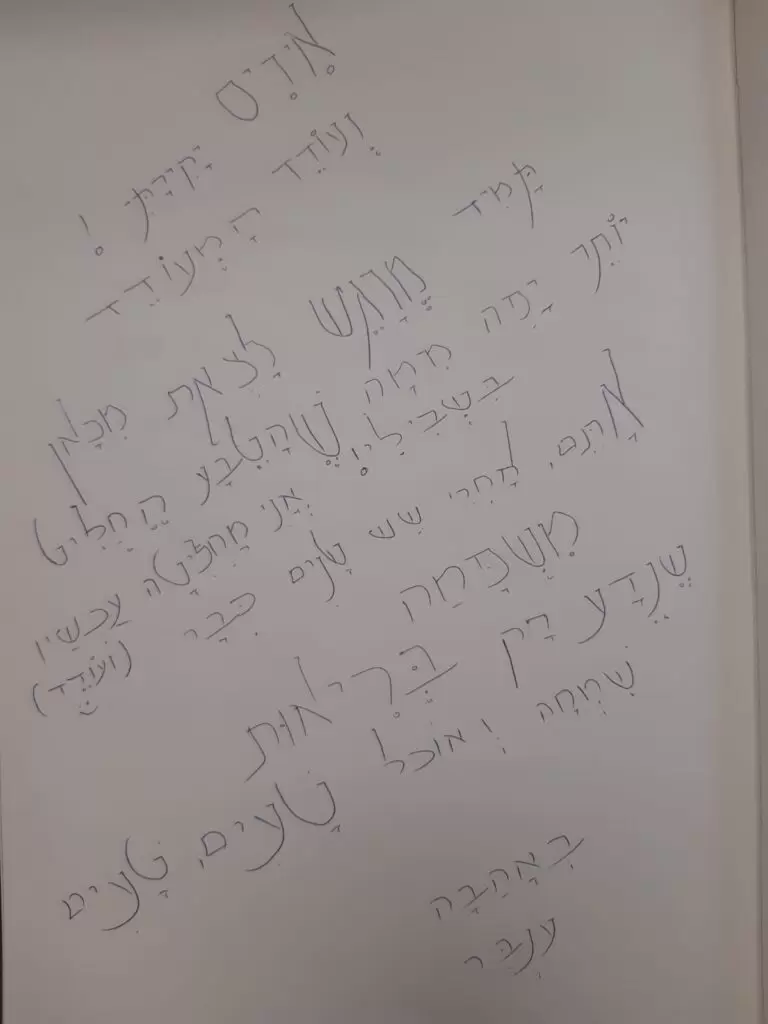 אִירִיס יַקִירָתִי !
וְעוֹדֵד הַמְעוֹדֵד
תָּמִיד מְרַגֵּשׁ לָצֵאת מִכָּאן
יוֹתֵר יָפָה מִמָּה שֶׁהַטֶּבַע הֶחֱלִיט
בִּשְׁבִילִי, אֲנִי מַחְלִיטָה עַכְשָׁיו
אַתֶּם, אַחֲרֵי שֵׁשׁ שָׁנִים כְּבָר (וְעוֹדֵד)
מִשְׁפָּחָה
שֶׁנֵּדַע רַק בְּרִיאוּת
שִׂמְחָה וְאוֹכֶל טָעִים, טָעִים
בְּאַהֲבָה
עִנְבָּר